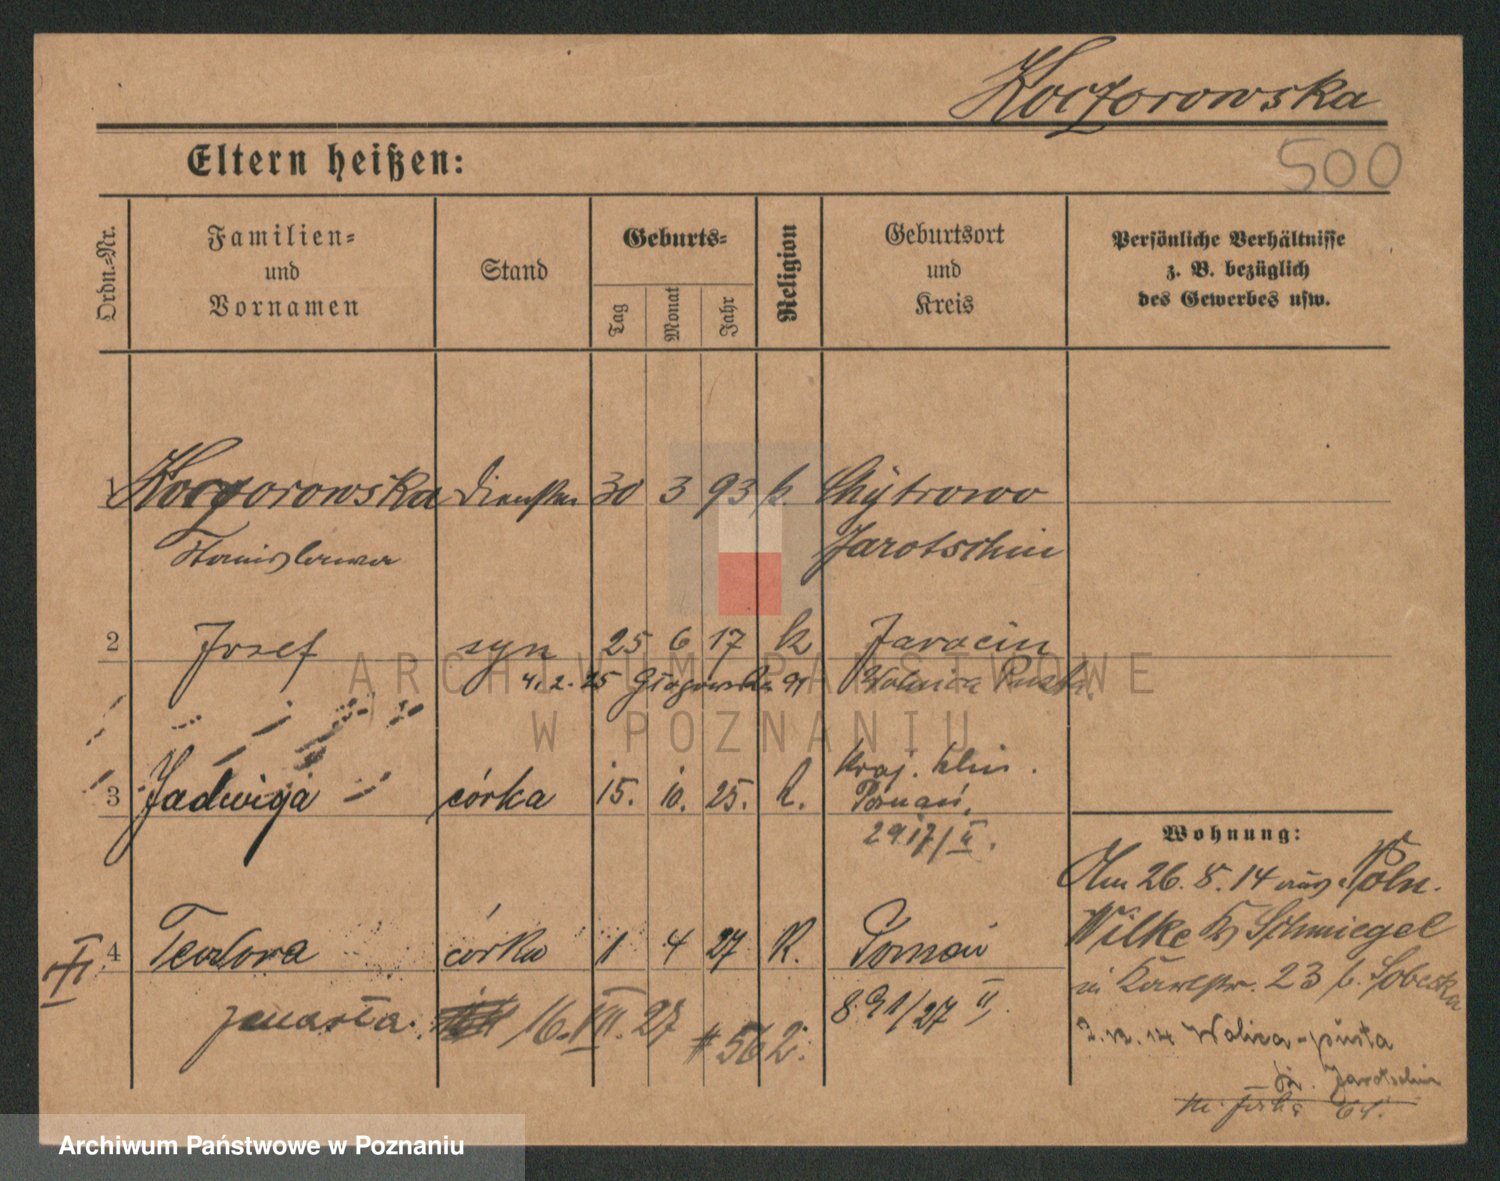 Koczorowska
500
Eltern heißen:
Ordn.-Nr.
Familien-
und
Vornamen
Stand
Geburts-
Tag
Monat
Jahr
Religion
Geburtsort
und
Kreis
Persönliche Verhältnisse
z. B. bezüglich
des Gewerbes usw.
1 Koczorowska 30 3 93 k. Chytrowo
Stanislawa Jarotschin
2 Josef syn 25 6 17 k Jarocin
4. 2. 25 Głogowska 91 Wolica Pusta
3 Jadwiga córka 15. 10. 25. k. Kraj. Klin.
Poznań.
2917/II.
Wohnung:
Am 26. 8. 14 aus Poln.
Wilke Kr Schmiegel
in 23 b. Sobecka
2. 12. 14 Wolica-pusta
Kr. Jarotschin
4 Teodora córka 1 4 27 K. Poznań
891/27 II
zmarła 16. VII. 27 #562.
VI
ARCHIWUM PAŃSTWOWE
W POZNANIU
Archiwum Państwowe w Poznaniu